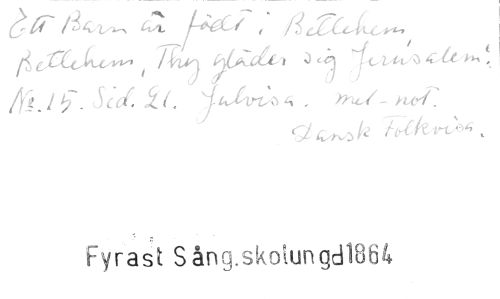 Ett Barn är född i Betlehem,
Betlehem, Thy gläder sig Jerusalem.
No. 15. Sid. 21. Julvisa. mel-not.
Dansk Folkvisa.
Fyrast Sång.skolungd1864